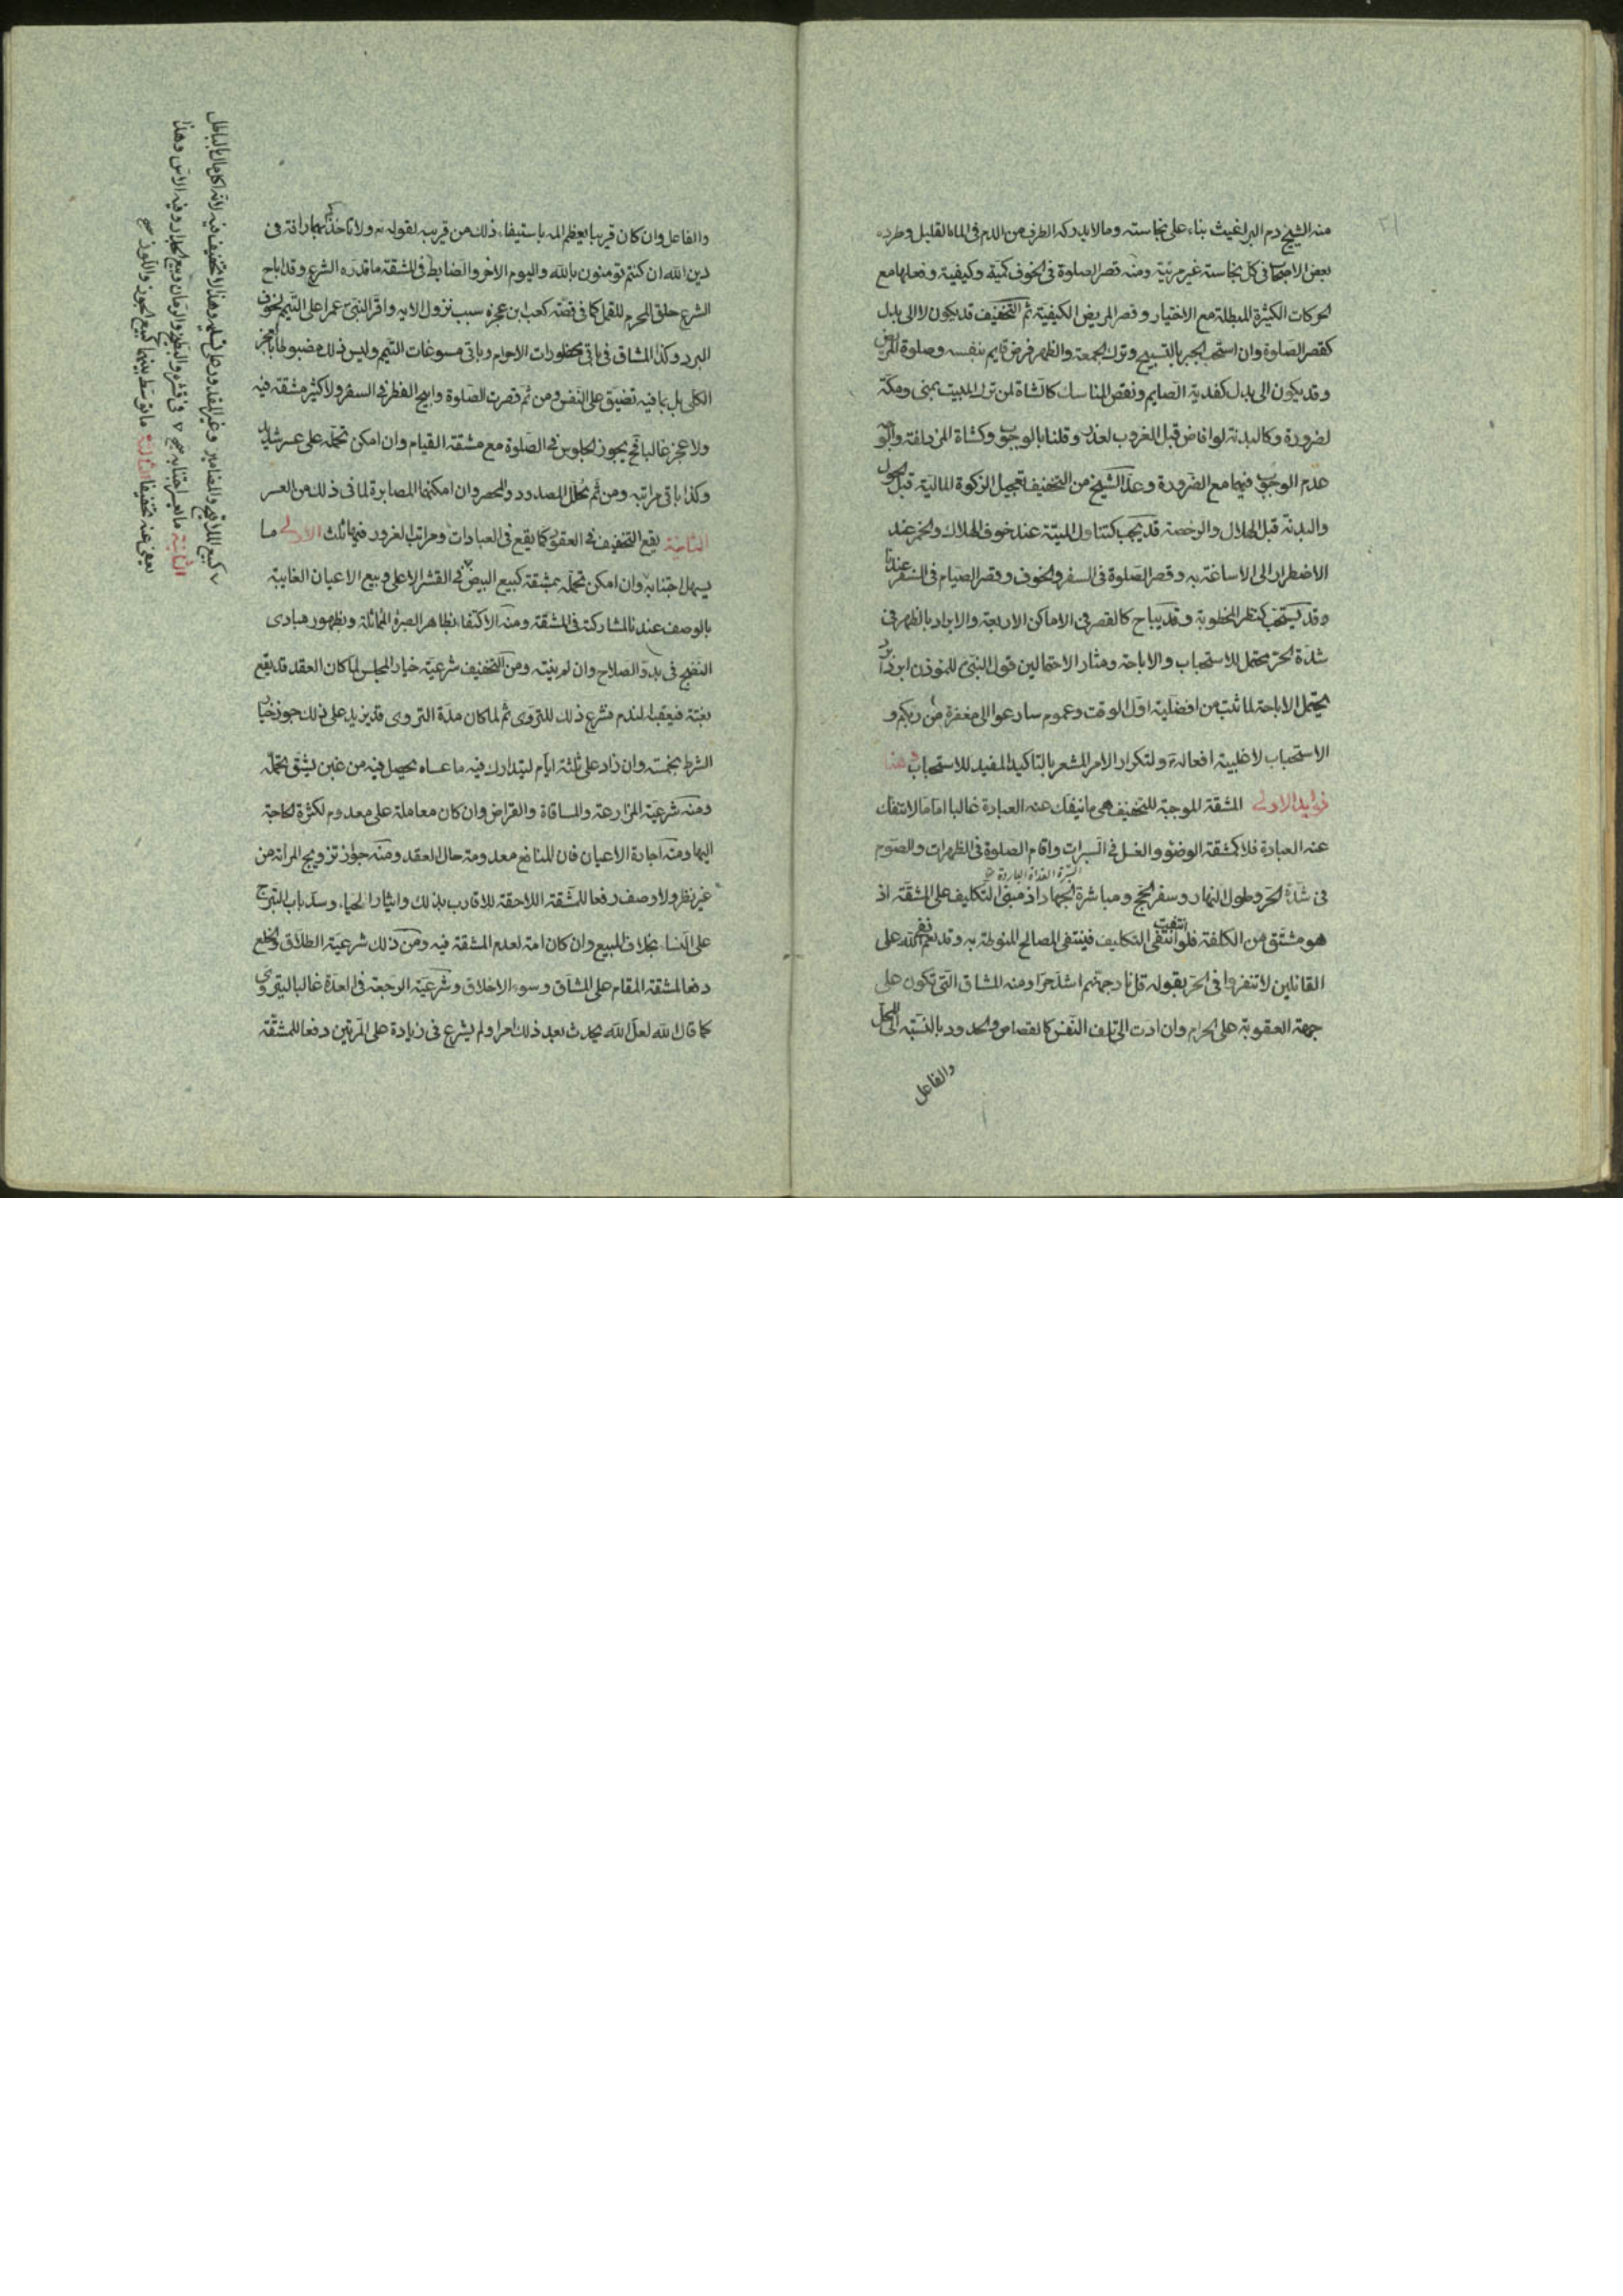 ٢١
منه الشيخ دم البراغيث بناء على نجاسته وما لا يدركه الطرف من الدم فى الماء القليل وطرده
بعض الاصحاب فى كل نجاسة غير مرئية ومنه قصر الصلوة فى الخوف كمية وكيفية وفعلها مع
الحركات الكثيرة المبطلة مع الاختيار وقصر المريض الكيفية ثم التخفيف قد يكون لا الى بدل
كقصر الصلوة وان استحب الجبر بالتسبيح وترك الجمعة والظهر فرض قايم بنفسه وصلوة المريض
وقد يكون الى بدل كفدية الصايم ونقص المناسك كالشاة لمن ترك المبيت بمنى ومكة
لضرورة وكالبدنة لو افاض قبل الغروب لعذر وقلنا بالوجوب وكشاة المزدلفة
عدم الوجوب فيهما مع الضرورة وعد الشيخ من التخفيف تعجيل الزكوة المالية قبل الحول
والبدنة قبل الهلال والرخصة قد يجب كتناول الميتة عند خوف الهلاك والخمر عند
الاضطرار الى الاساغة به وقصر الصلوة فى السفر والخوف وقصر الصيام فى السفر عندنا
وقد يستحب كنظر المخطوبة وقد يباح كالقصر فى الاماكن الاربعة والابراد بالظهر فى
شدة الحر محتمل للاستحباب والاباحة ومثار الاحتمالين قول النبى للموذن ابرد ابرد
يحتمل الاباحة لما ثبت من افضلية اول الوقت وعموم سارعوا الى مغفرة من ربكم و
الاستحباب لاغلبية افعاله ولتكرار الامر المشعر بالتاكيد المفيد للاستحباب وهنا
فوايد الاولى المشقة الموجبة للتخفيف هى ما تنفك عنه العبادة غالبا اما ما لا تنفك
عنه العبادة فلا كمشقة الوضوء والغسل فى السبرات واقام الصلوة فى الظهرات والصوم
السبرة الغداة الباردة
فى شدة الحر وطول النهار وسفر الحج ومباشرة الجهاد اذ مبنى التكليف على المشقة اذ
هو مشتق من الكلفة فلو انتفت انتفى التكليف فينتفى المصالح المنوطة به وقد نعى الله على
القائلين لا تنفروا فى الحر بقوله قل نار جهنم اشد حرا ومنه المشاق التى تكون على
جهة العقوبة على الجرم وان ادت الى تلف النفس كالقصاص والحدود بالنسبة الى المحل
والفاعل
والفاعل وان كان قريبا يعظم المه باستيفاء ذلك من قريبه لقوله تع ولا تاخذكم بهما رافة فى
دين الله ان كنتم تومنون بالله واليوم الاخر والضابط فى المشقة ما قدره الشرع وقد اباح
الشرع حلق المحرم للقمل كما فى قصة كعب بن عجزه سبب نزول الايه واقر النبى عمرا على التيمم لخوف
البرد وكذا المشاق فى باقى محظورات الاحرام وباقى مسوغات التيمم وليس ذلك مضبوطا بالعجز
الكلى بل بما فيه تضييق على النفس ومن ثم قصرت الصلوة وابيح الفطر فى السفر ولا كثير مشقة فيه
ولا عجز غالبا فح يجوز الجلوس فى الصلوة مع مشقة القيام وان امكن تحمله على عسر شديد
وكذا باقى مراتبه ومن ثم تحلل المصدود والمحصر وان امكنهما المصابرة لما فى ذلك من العسر
الثانية يقع التخفيف فى العقود كما يقع فى العبادات ومراتب الغرور فيها ثلث الاولى ما
يسهل اجتنابه وان امكن تحمله بمشقة كبيع البيض فى القشر الاعلى وبيع الاعيان الغايبة
بالوصف عندنا للمشاركة فى المشقة ومنه الاكتفاء بظاهر الصبرة المماثلة وبظهور مبادى
النضج فى بدو الصلاح وان لم ينته ومن التخفيف شرعية خيار المجلس لما كان العقد قد يقع
بغتة فيعقبه الندم فشرع ذلك للتروى ثم لما كان مدة التروى قد يزيد على ذلك جوز خيار
الشرط بخمسة وان زاد على ثلثة ايام ليتدارك فيه ما عساه يحصل فيه من غبن يشق تحمله
ومنه شرعية المزارعة والمساقاة والقراض وان كان معاملة على معدوم لكثرة الحاجة
اليها ومنه اجارة الاعيان فان المنافع معدومة حال العقد ومنه جواز تزويج المراة من
غير نظر ولا وصف دفعا للمشقة اللاحقة للاقارب بذلك وايثار الحياء وسد باب التبرج
على النساء بخلاف المبيع وان كان امة لعدم المشقة فيه ومن ذلك شرعية الطلاق والخلع
دفعا لمشقة المقام على المشاق وسوء الاخلاق وشرعية الرجعة فى العدة غالبا ليتروى
كما قال الله لعل الله يحدث بعد ذلك امرا ولم يشرع فى زيادة على المرتين دفعا للمشقة
كبيع الملاقيح والمضامين وغير المقدور على تسليمه وهذا لا تخفيف فيه لانه اكل مال بالباطل
الثانية ما يعسر اجتنابه فى قشره والبطيخ والرمان وبيع الجدار وفيه الاس وهذا
يعفى عنه تخفيفا الثالثة ما توسط بينهما كبيع الجوز واللوز صح